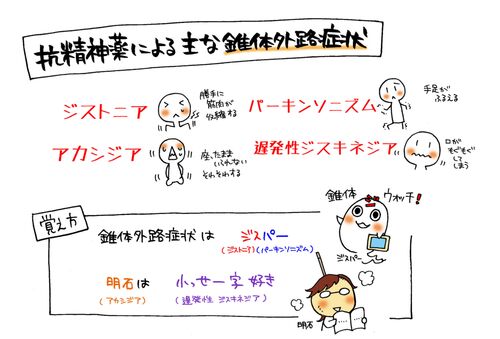 抗精神薬による主な錐体外路症状
ジストニア
勝手に
筋肉が
収縮する
パーキンソニズム
手足が
ふるえる
アカシジア
座ったまま
いられない
そわそわする
遅発性ジスキネジア
口が
もぐもぐ
して
しまう
覚え方
錐体外路症状は ジスパー
(ジストニア)(パーキンソニズム)
明石は 小っせー字 好き
(アカシジア) (遅発性 ジスキネジア)
錐体 ウォッチ!
ジスパー
明石